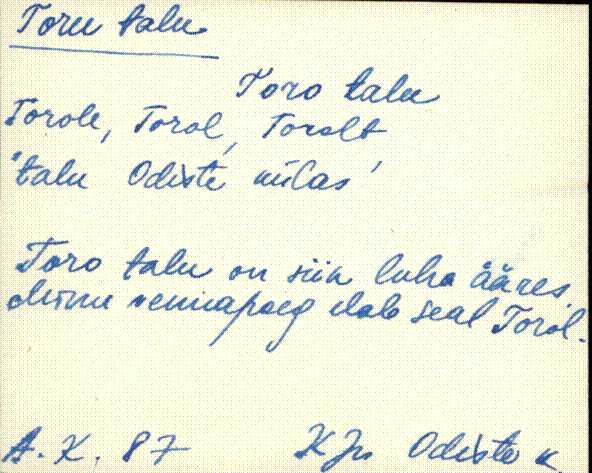 Toru talu
Toro talu
Torole, Torol, Torolt
'talu Odiste külas'
Toro talu on siin luha ääres,
minu vennapoeg elab seal Torol.
A. K. 87 KJn Odiste k